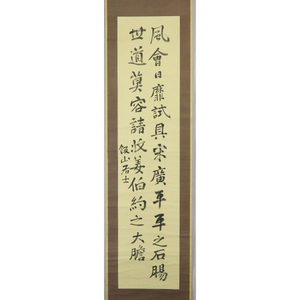 風會日靡試具宋廣平之石腸
世道莫容請收姜伯約之大膽
飯山居士